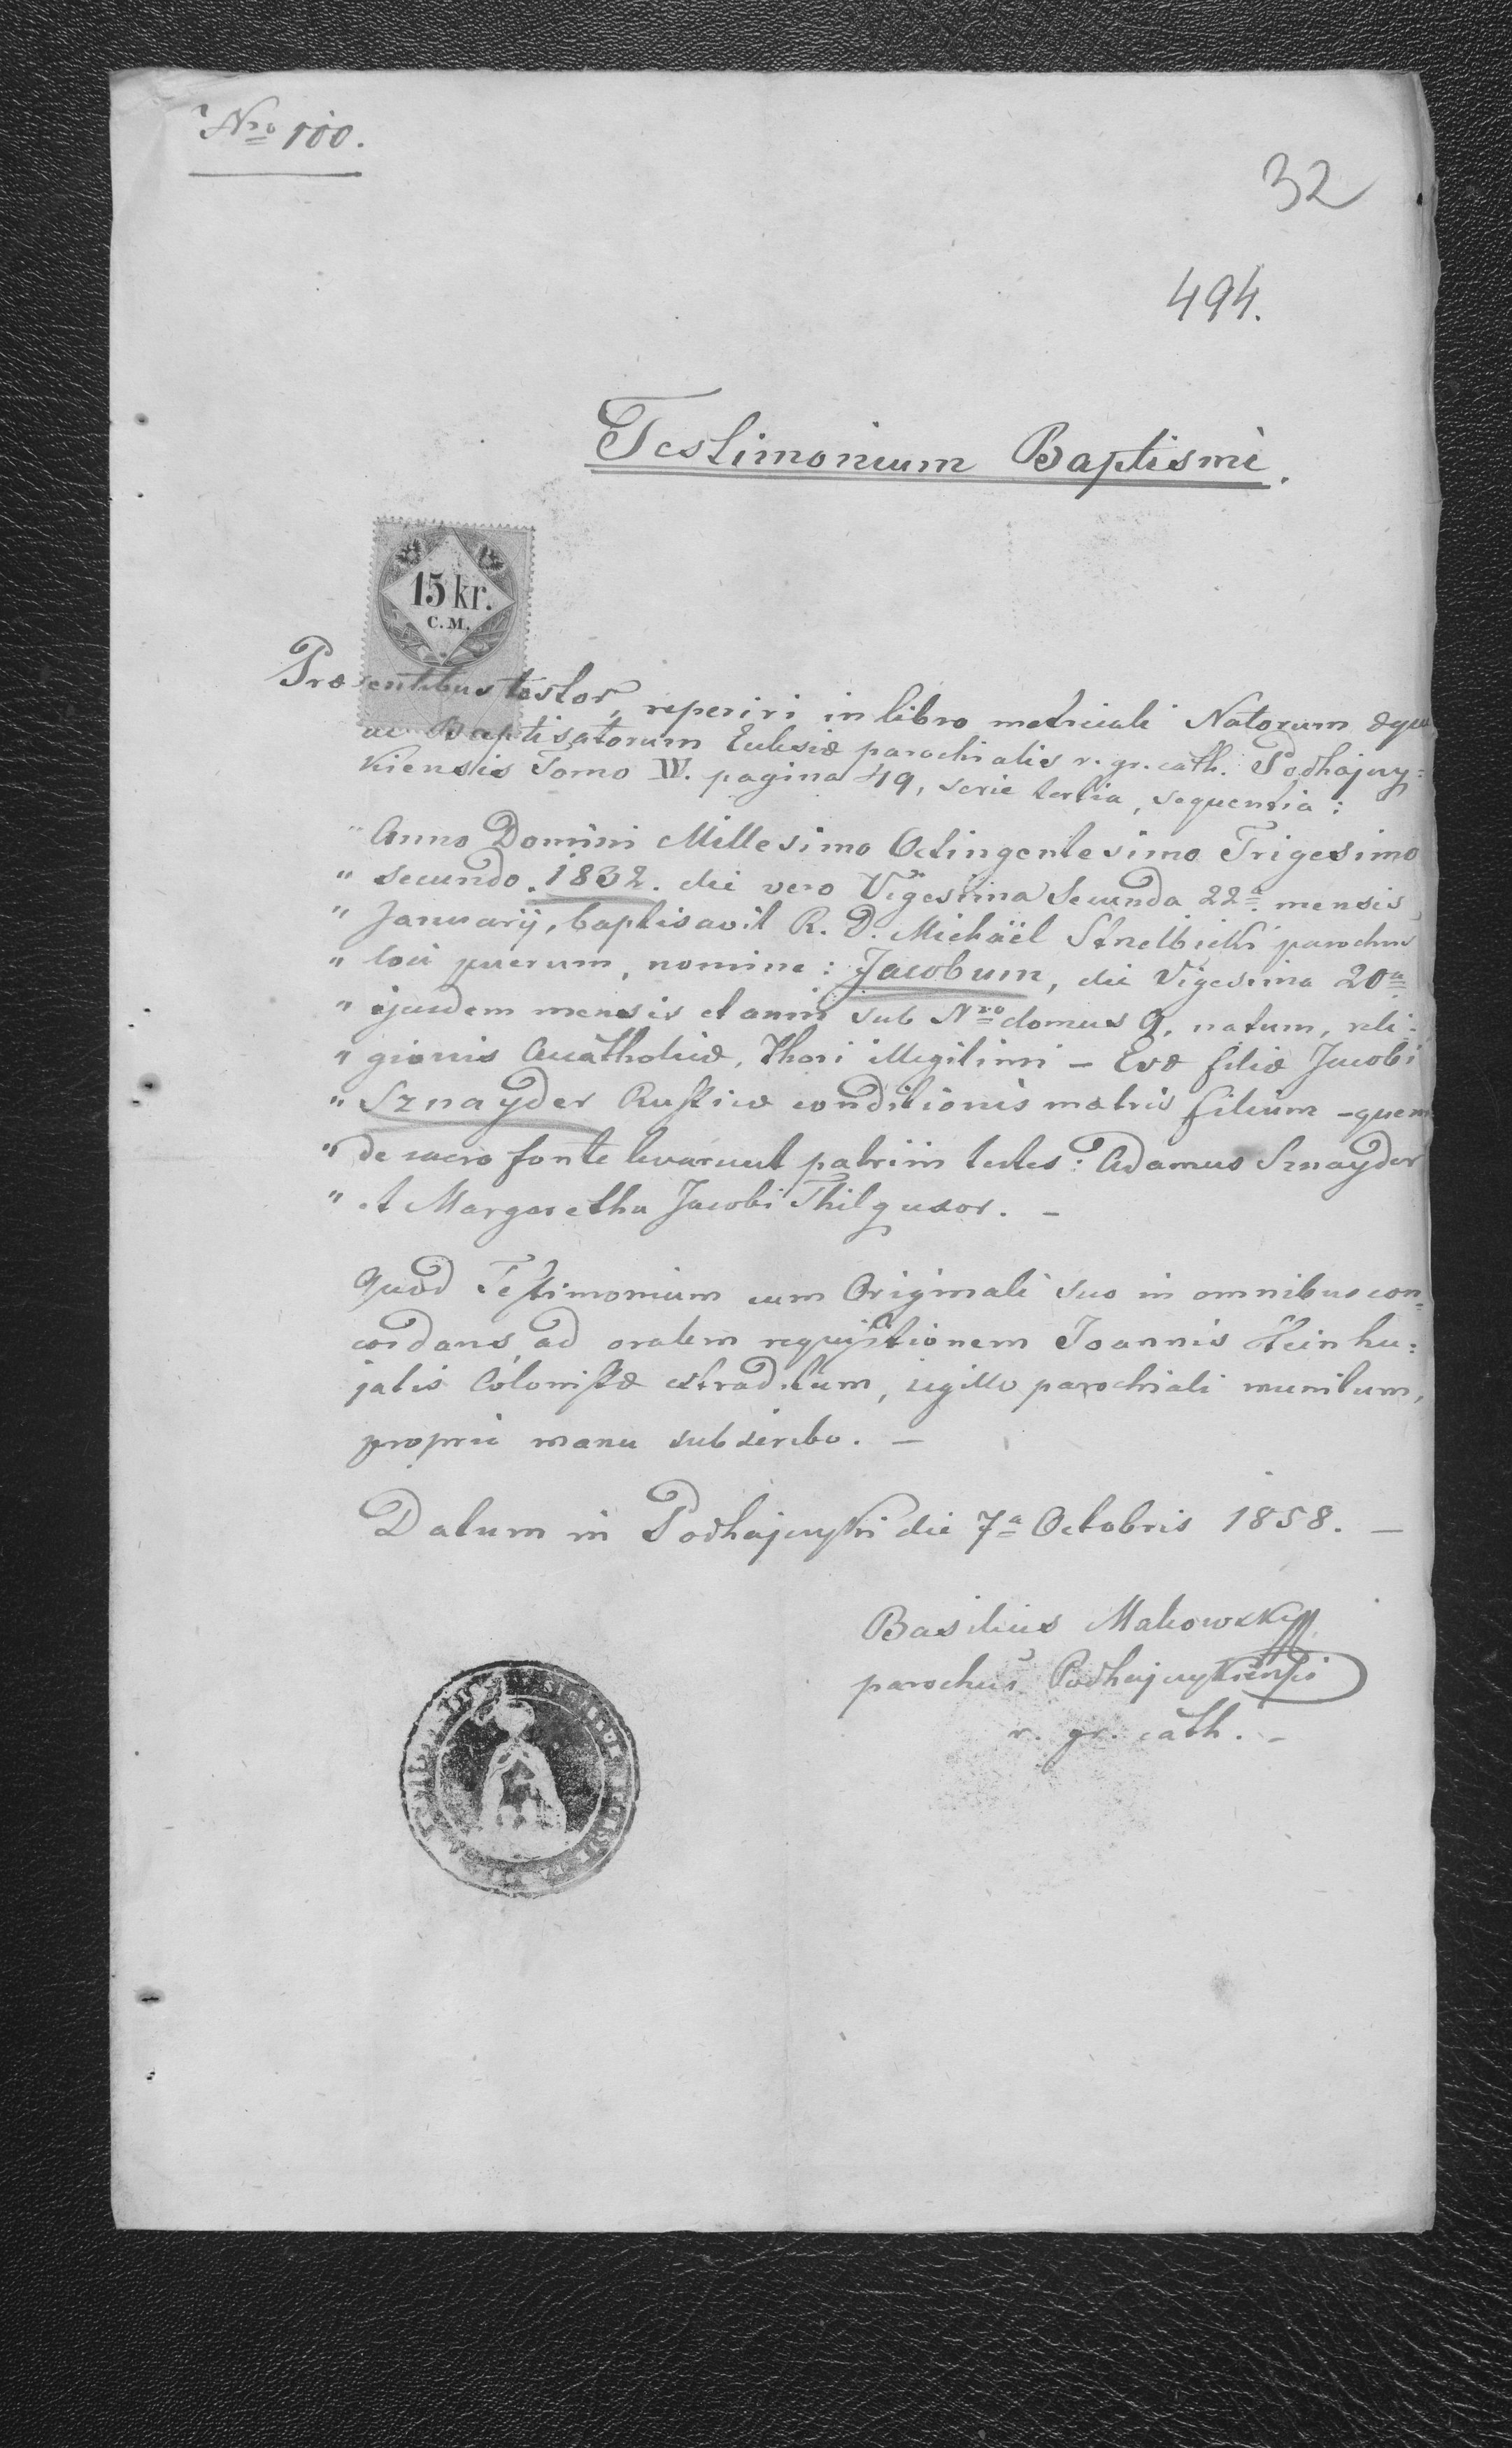 Nro 100.
32
494.
Testimonium Baptismi.
15 kr.
C.M.
Præsentibus testor, reperiri in libro metricali Natorum æque
ac Baptisatorum Eclesiæ parochialis r. gr. cath. Podhajczy=
kiensis Tomo IV. pagina 49, serie tertia, sequentia:
"Anno Domini Millesimo Octingentesimo Trigesimo
"secundo. 1832. die vero Vigesima Secunda 22a mensis
"Januarij, baptisavit R. D. Michaël Strelbicki parochus
"loci puerum, nomine: Jacobum, die Vigesima 20a
"ejusdem mensis et anni sub Nro domus 9, natum, reli=
"gionis Acatholicæ, thori illegitimi – Evæ filiæ Jacobi
"Sznayder Rusticæ conditionis matris filium – quem
"de sacro fonte levarunt patrini testes: Adamus Sznayder
"et Margaretha Jacobi Thilg uxor. –
Quod Testimonium cum Originali suo in omnibus con=
cordans, ad oralem requisitionem Joannis hu=
jatis Colonistæ extraditum, sigillo parochiali munitum,
proprie manu subscribo. –
Datum in Podhajczyki die 7a Octobris 1858. –
Basilius Makowsky
parochus Podhajczykiensis
r. gr. cath. –